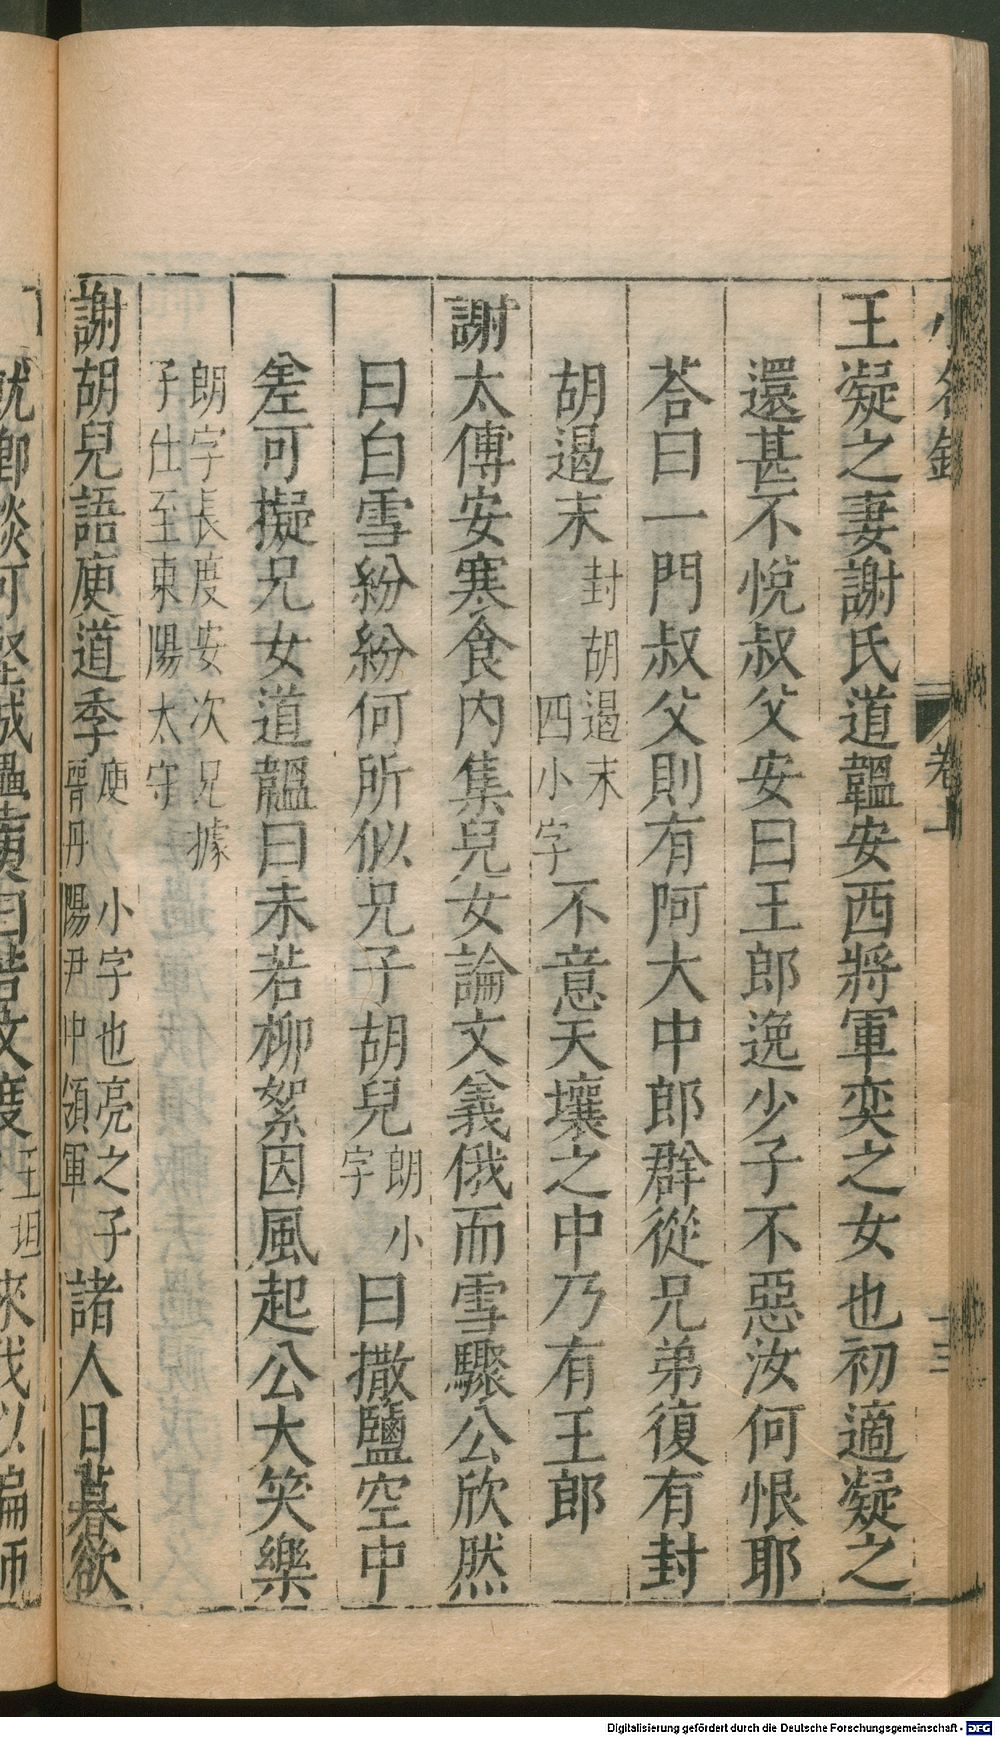 小名錄
卷上
十三
王凝之妻謝氏道韞安西將軍奕之女也初適凝之
還甚不悅叔父安曰王郎逸少子不惡汝何恨耶
荅曰一門叔父則有阿大中郎群從兄弟復有封
胡遏末封胡遏末四小字不意天壤之中乃有王郎
謝太傅安寒食內集兒女論文義俄而雪驟公欣然
曰白雪紛紛何所似兄子胡兒朗小字曰撒鹽空中
差可擬兄女道韞曰未若柳絮因風起公大笑樂
朗字長度安次兄據
子仕至東陽太守
謝胡兒語庾道季庾小字也亮之子
胥丹陽尹中領軍諸人日暮欲
就卿談可堅城壘
曰若文度王坦來我以偏師
Digitalisierung gefördert durch die Deutsche Forschungsgemeinschaft - DFG